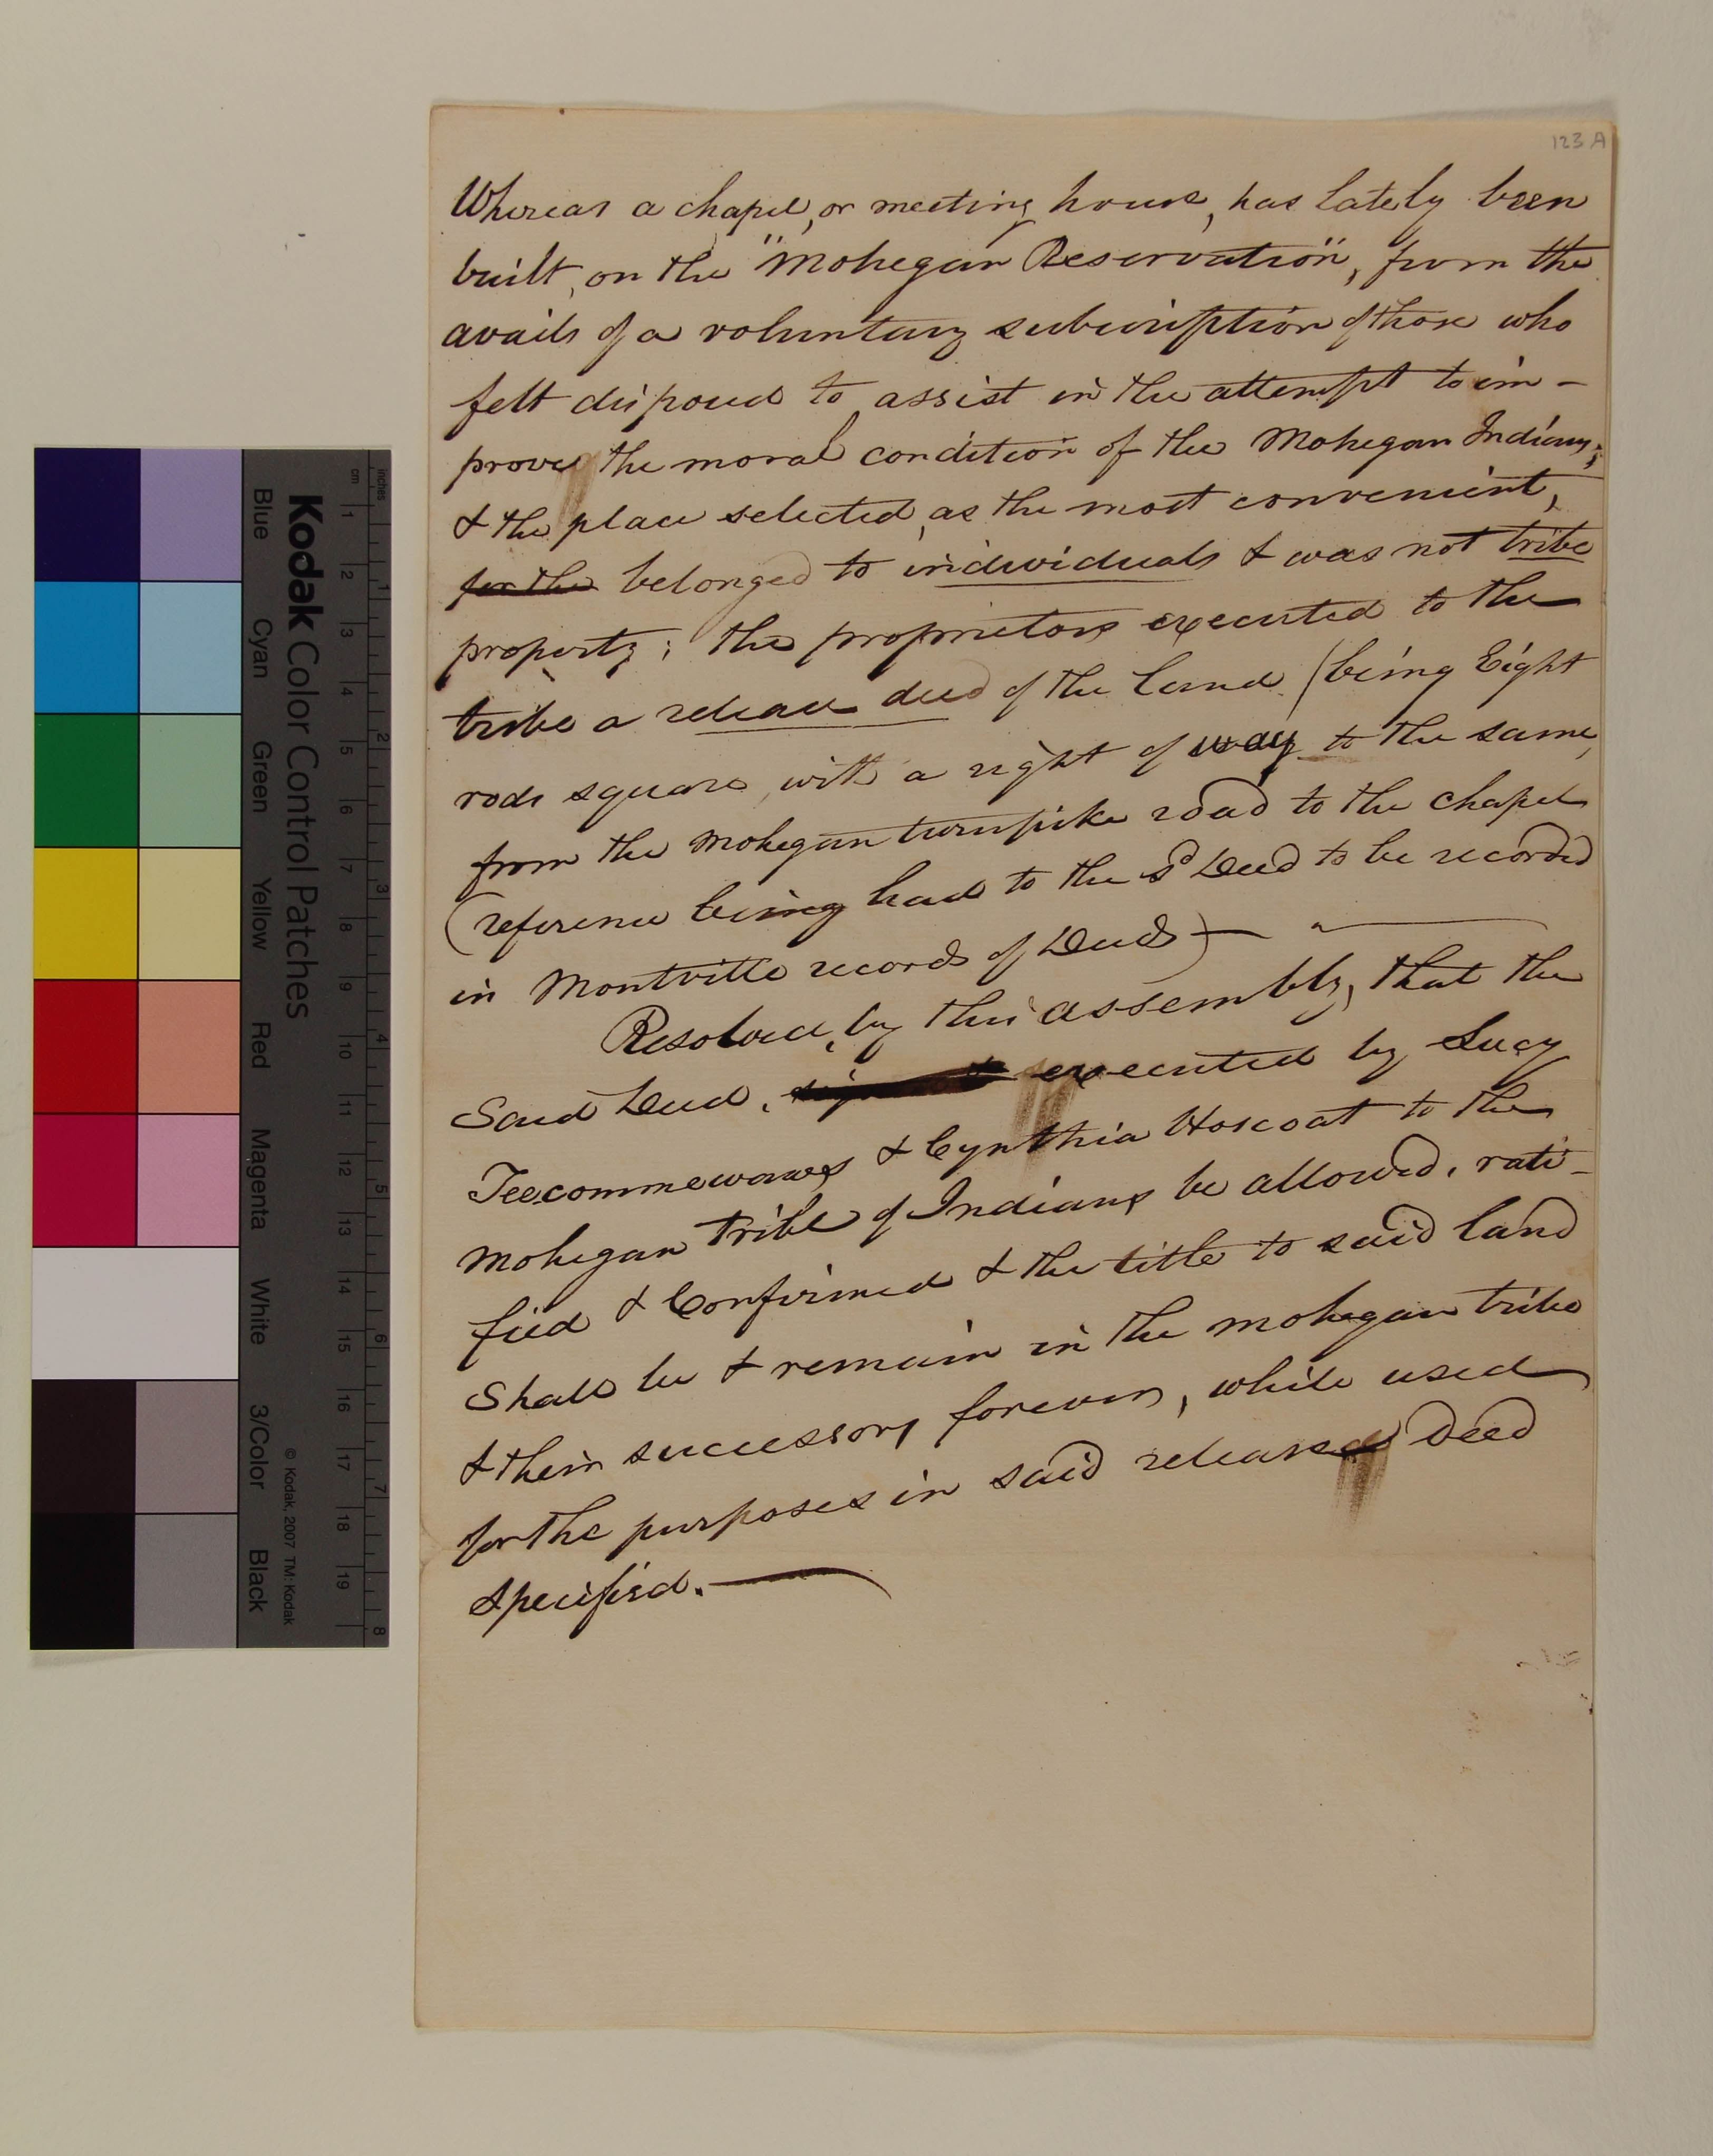 123 A
Whereas a chapel, or meeting house, has lately been
built, on the "Mohegan Reservation", from the
avails of a voluntary subscription of those who
felt disposed to assist in the attempt to im-
prove the moral condition of the Mohegan Indians;
& the place selected, as the most convenient,
for the belonged to individuals & was not tribe
property; the proprietors executed to the
tribe a release deed of the land (being Eight
rods square, with a right of way to the same,
from the Mohegan turnpike road to the chapel
(reference being had to the sd Deed to be recorded
in Montville records of Deeds)—
Resolved, by this assembly, that the
Said Deed, executed by Lucy
Teecommewaws & Cynthia Hoscoat to the
Mohegan Tribe of Indians be allowed, rati-
fied & Confirmed & the title to said land
Shall be & remain in the mohegan tribe
& their successors forever, while used
for the purposes in said release Deed
specified.—
Kodak Color Control Patches
Blue Cyan Green Yellow Red Magenta White 3/Color Black
© Kodak, 2007 TM: Kodak
inches 1 2 3 4 5 6 7 8
cm 1 2 3 4 5 6 7 8 9 10 11 12 13 14 15 16 17 18 19